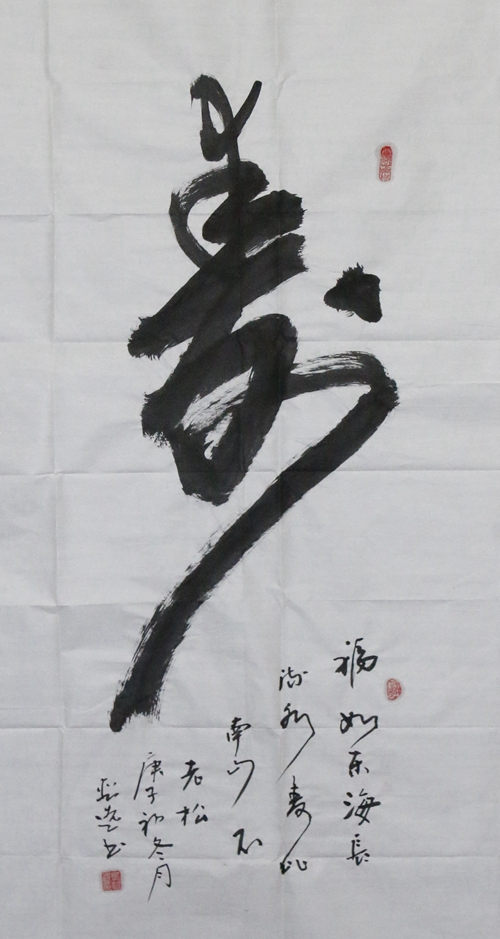 寿
福如东海長
流水寿比
南山不
老松
庚子初冬月
书